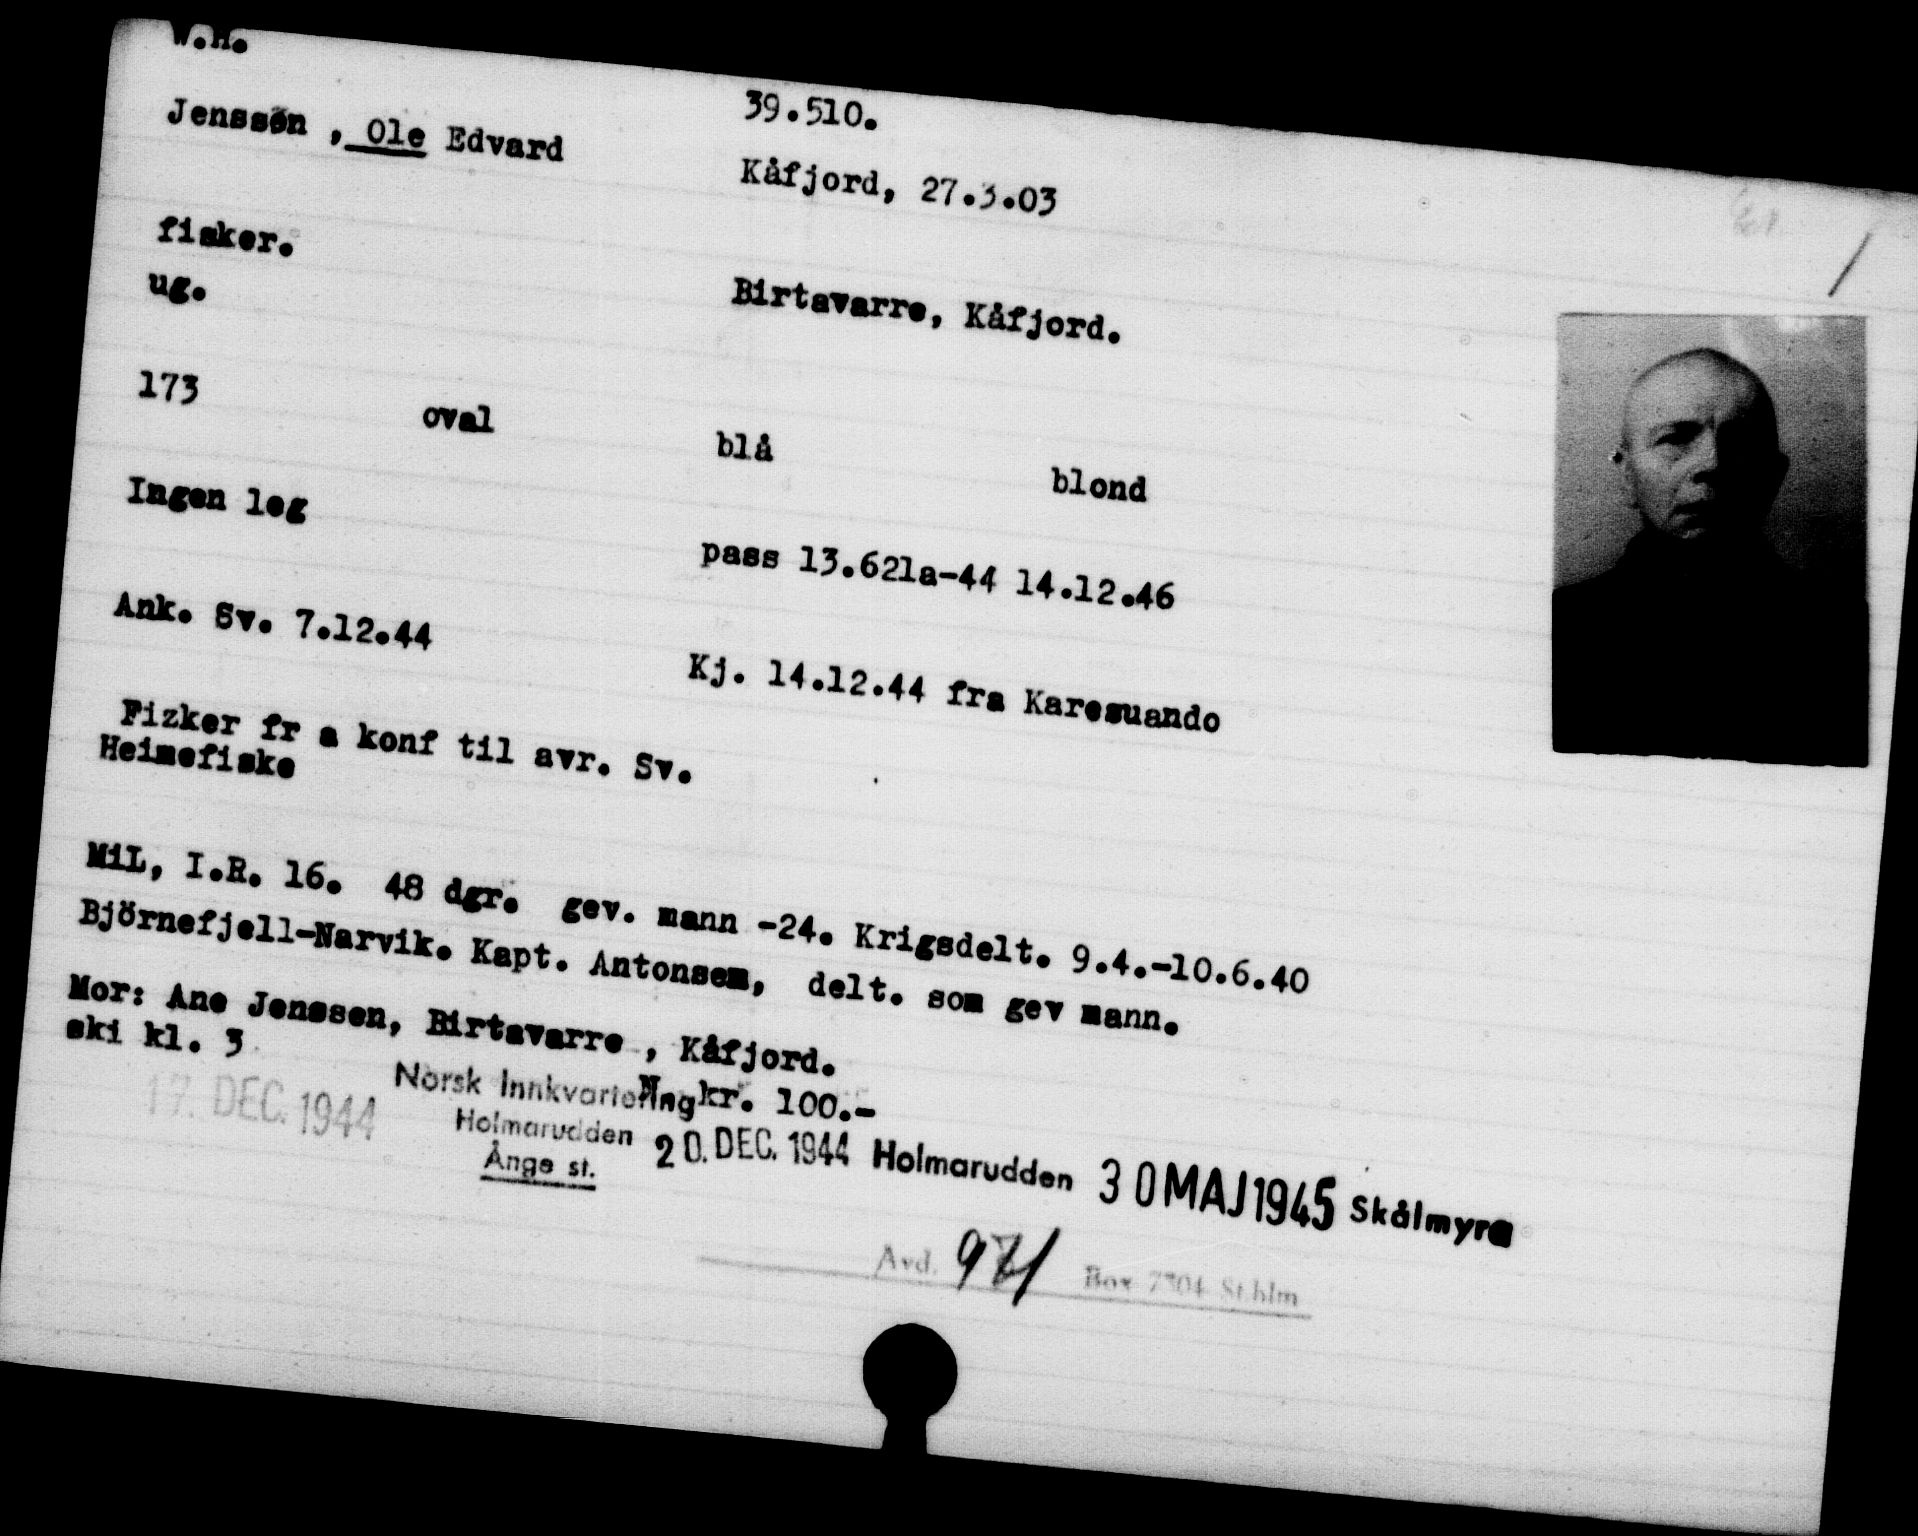 W.H.
39.510.
Jenssen , Ole Edvard
Kåfjord, 27.3.03
fisker.
ug.
Birtavarre, Kåfjord.
173 oval blå blond
Ingen leg
pass 13.621a-44 14.12.46
Ank. Sv. 7.12.44
Kj. 14.12.44 fra Karesuando
Fizker fr a konf til avr. Sv.
Heimefiske
MiL, I.R. 16. 48 dgr. gev. mann -24. Krigsdelt. 9.4.-10.6.40
Björnefjell-Narvik. Kapt. Antonsem, delt. som gev mann.
Mor: Ane Jenssen, Birtavarre , Kåfjord.
ski kl. 3
N kr. 100.-
17. DEC. 1944
Norsk Innkvartering
Holmarudden
Ånge st.
20. DEC. 1944 Holmarudden 30 MAJ 1945 Skålmyra
Avd. 971 Box 7304 St.hlm